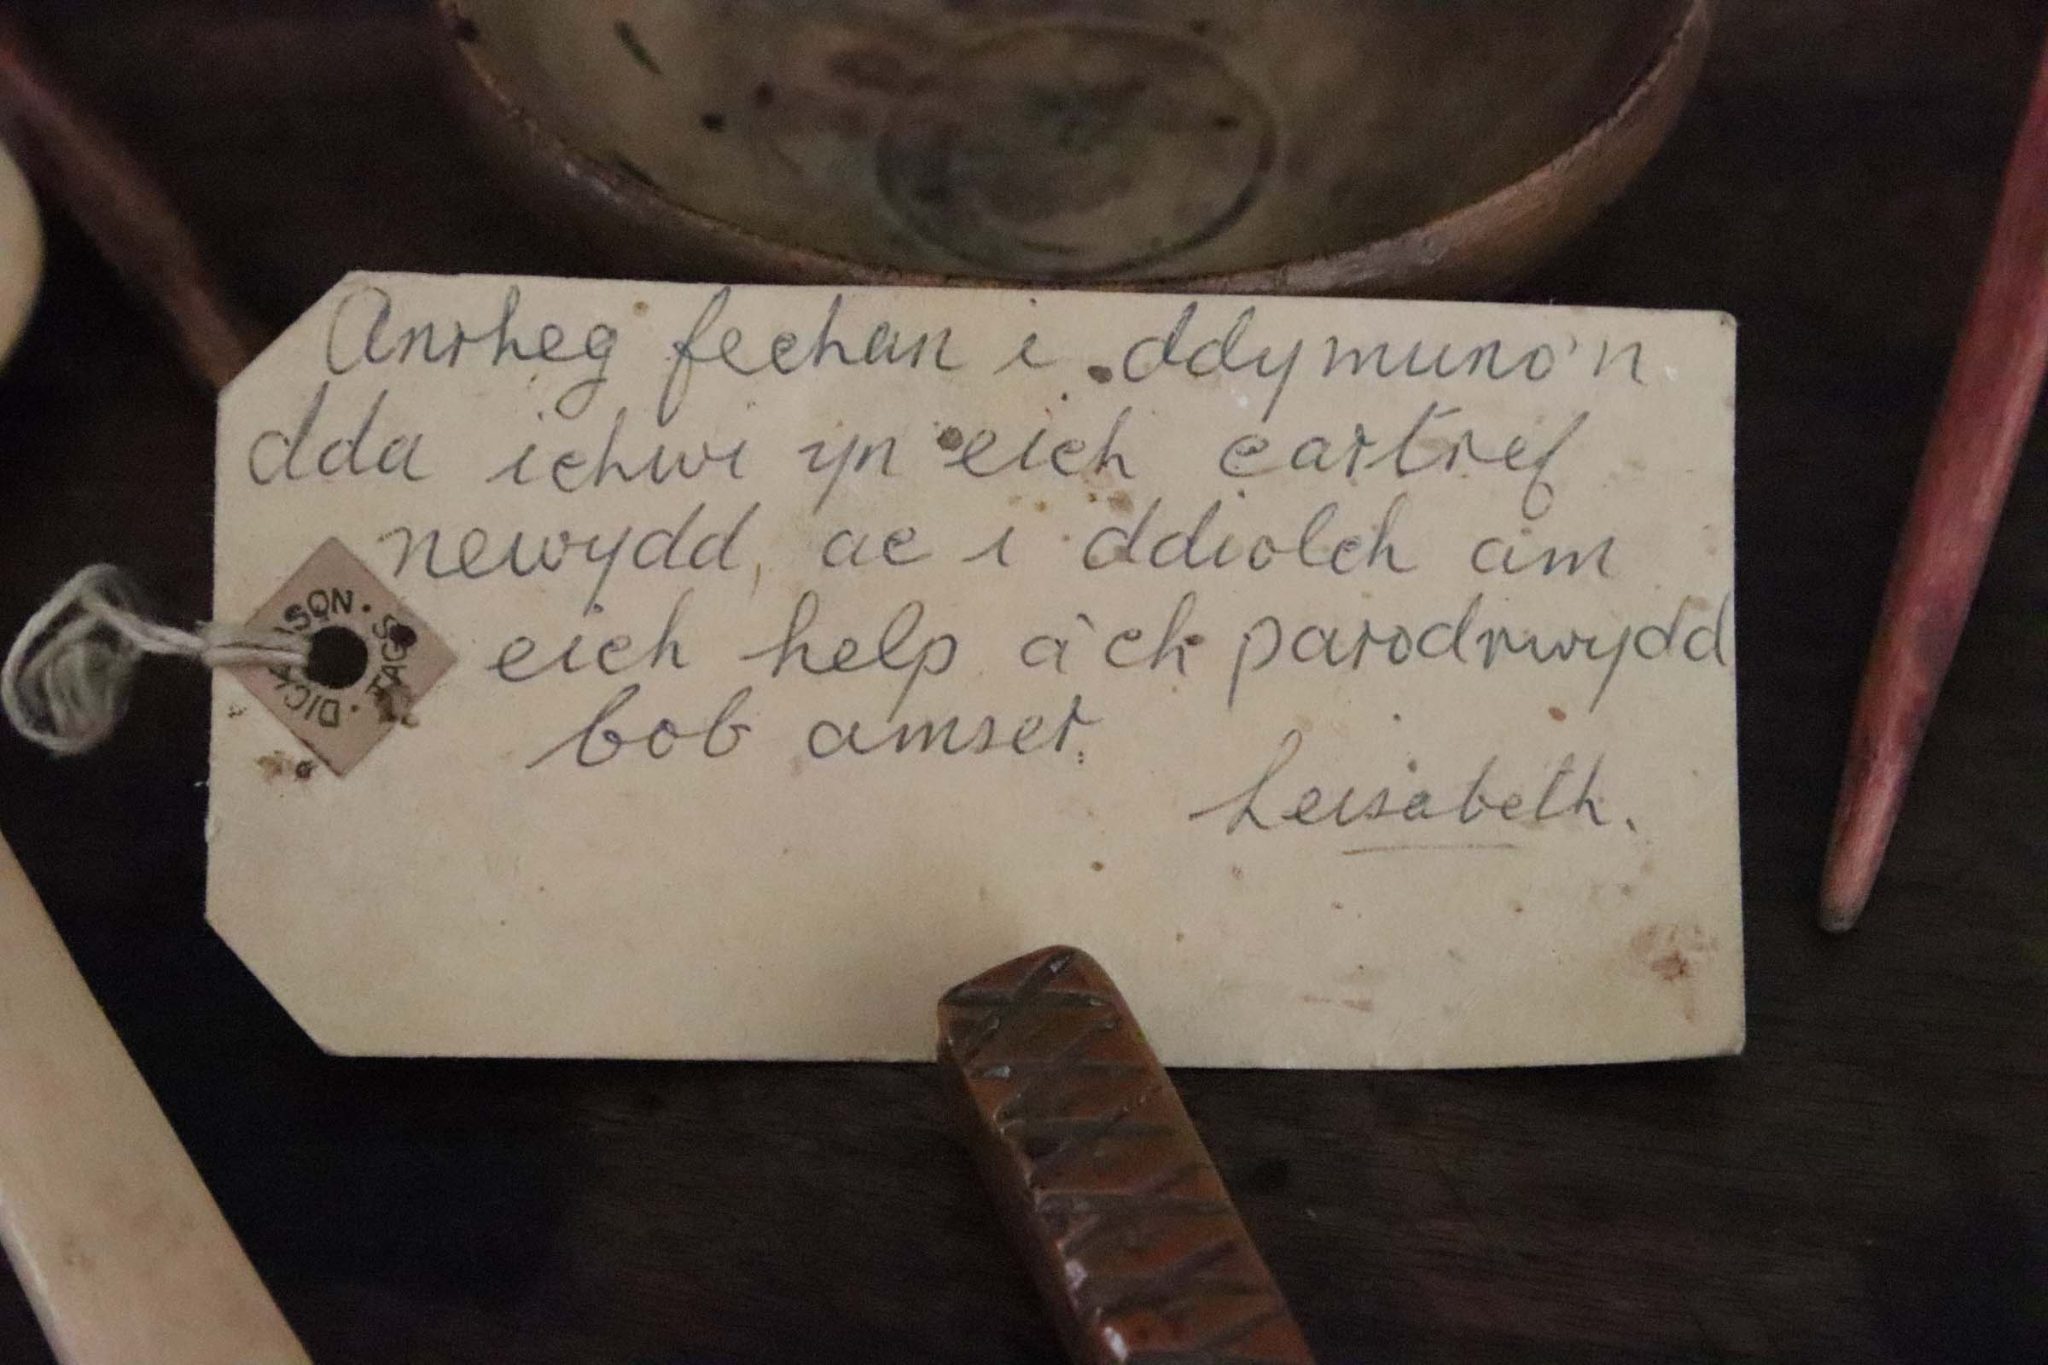 Anrheg fechan i ddymuno'n
dda ichwi yn eich cartref
newydd, ac i ddiolch am
eich help a'ch parodrwydd
bob amser.
Leisabeth.
DICKINSON · TAGS ·